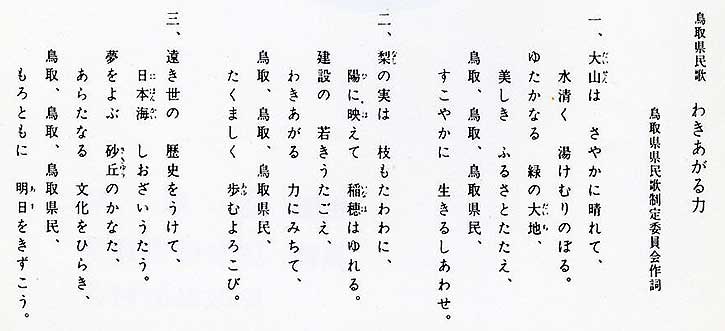 鳥取県民歌 わきあがる力
鳥取県県民歌制定委員会作詞
一、大山は さやかに晴れて、
水清く 湯けむりのぼる。
ゆたかなる 緑の大地、
美しき ふるさとたたえ、
鳥取、鳥取、鳥取県民、
すこやかに 生きるしあわせ。
二、梨の実は 枝もたわわに、
陽に映えて 稲穂はゆれる。
建設の 若きうたごえ、
わきあがる 力にみちて、
鳥取、鳥取、鳥取県民、
たくましく 歩むよろこび。
三、遠き世の 歴史をうけて、
日本海 しおざいうたう。
夢をよぶ 砂丘のかなた、
あらたなる 文化をひらき、
鳥取、鳥取、鳥取県民、
もろともに 明日をきずこう。